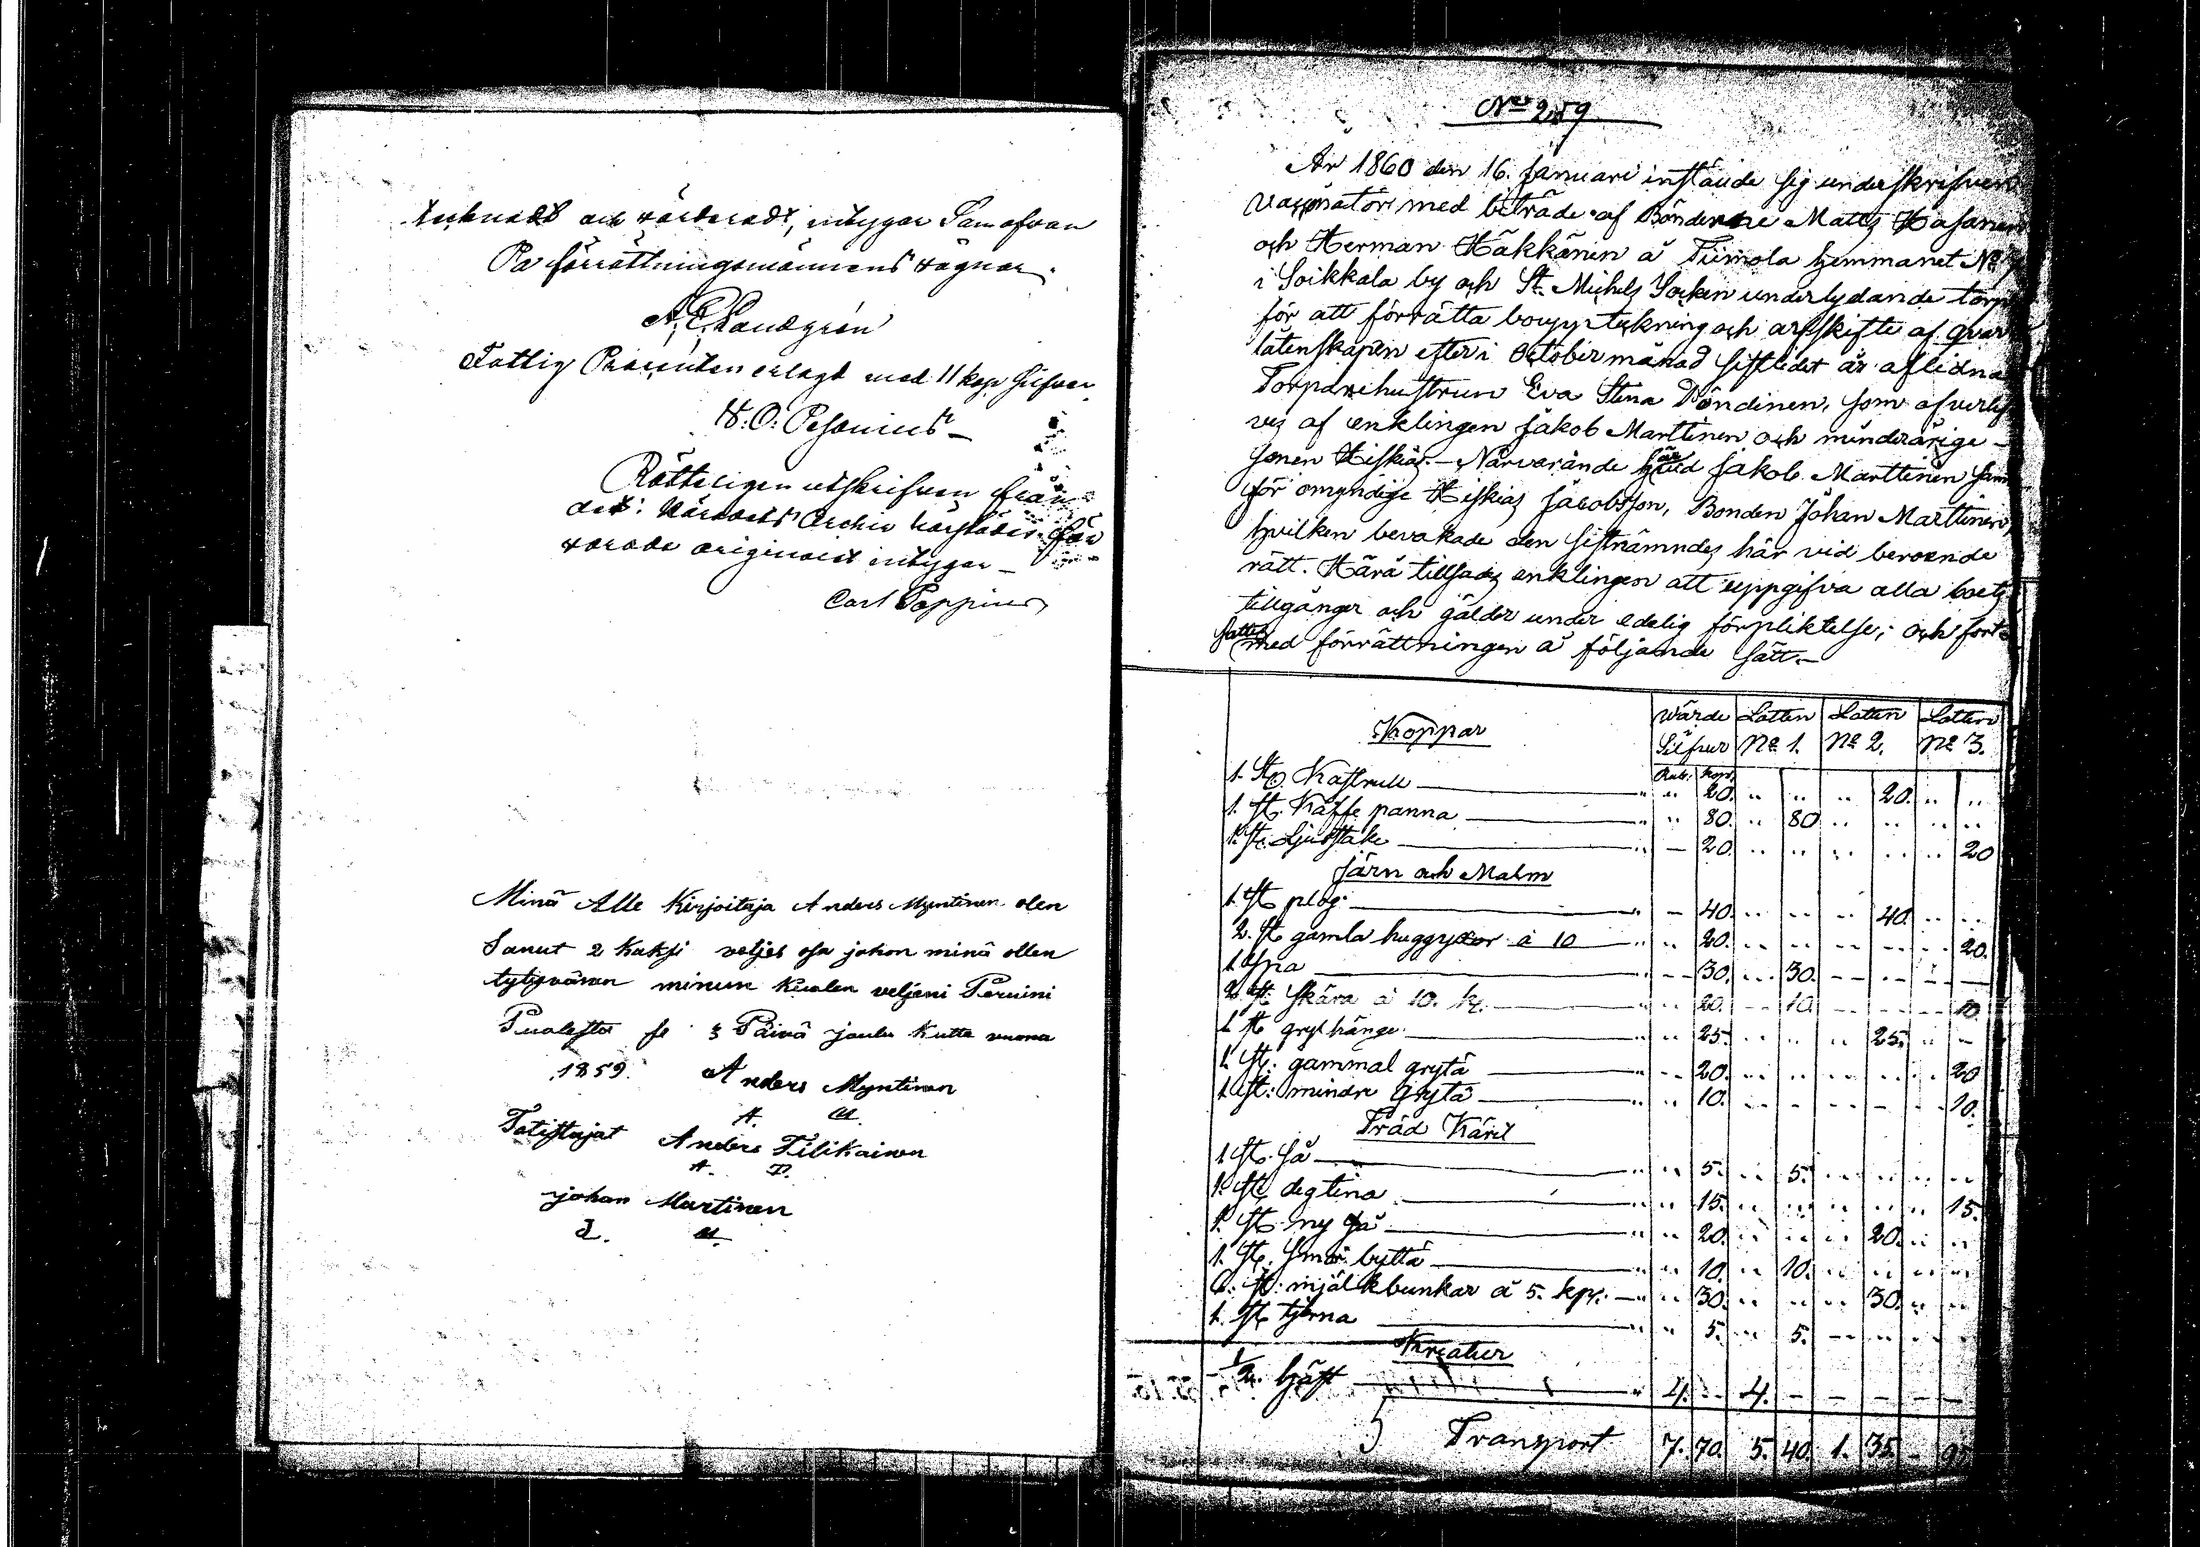 tecknadt och värderadt, intygar Samofvan
På förrättningsmännens vägnar.
A. E. Landgrén
Fattig Procenten erlagt med 11 kop. Silfver
W. O. Pesonius
Rätteligen utskrifven från
det i Häradets Archiv härstädes för
varade originalet intygar
Carl Poppius
Minä Alle Kirjoitaja Anders Myntinen olen
Sanut 2 kaksi veljes osa johon minä ollen
tytyväinen minun Kuolen veljeni Peruini
Puolesta se 3 Päivä joulu Kutta vuona
1859. Anders Myntinen
A. M.
Totistajat Anders Tilikainen
A. T.
johan Martinen
J. M.
No 259.
År 1860 den 16. Januari instälde sig underskrifven
Vaccinatör med biträde af Bönderne Matts Hasanen
och Herman Häkkänen å Tiimola hemmanet No
i Soikkala by och St. Michels Socken underlydande torp
för att förrätta bouppteckning och arfskifte af qvar
låtenskapen efter i October månad sistledet år aflidna
Torparehustrun Eva Stina Pöndinen, som öfverlef
ves af enklingen Jakob Marttinen och minderårige
Sonen Hiskias. Närvarande Jakob Marttinen samt
för omyndige Hiskias Jacobsson, Bonden Johan Marttinen,
hvilken bevakade den sistnämndes här vid beroende
rätt. Härå tillsades enklingen att uppgifva alla boets
tillgångar och gälder under edelig förpliktelse; och fort
sattes med förrättningen å följande sätt.
Koppar Wärde Silfver Lotten No 1. Lotten No 2. Lotten No 3.
Rub. Kop.
1. St. Kastrull 20. 20.
1. St. Kaffe panna 80. 80
1. St. Ljusstake 20. 20
Järn och Malm
1. St. plog 40. 40.
2. St. gamla huggyxor à 10 20. 20.
1. 30. 30.
2. St. Skära à 10. k. 20. 10. 10.
1. St. grythänge 25. 25.
1. St. gammal gryta 20. 20
1. St. mindre gryta 10. 10.
Träd Käril
1. St. Så 5. 5.
1. St. degtina 15. 15.
1. St. ny Så 20. 20.
1. St. Smör bytta 10. 10.
6. St. mjölkbunkar à 5. kp. 30. 30.
1. St. tjerna 5. 5.
Kreatur
1/2 häst 4. 4.
Transport 7. 70. 5. 40. 1. 35. 95